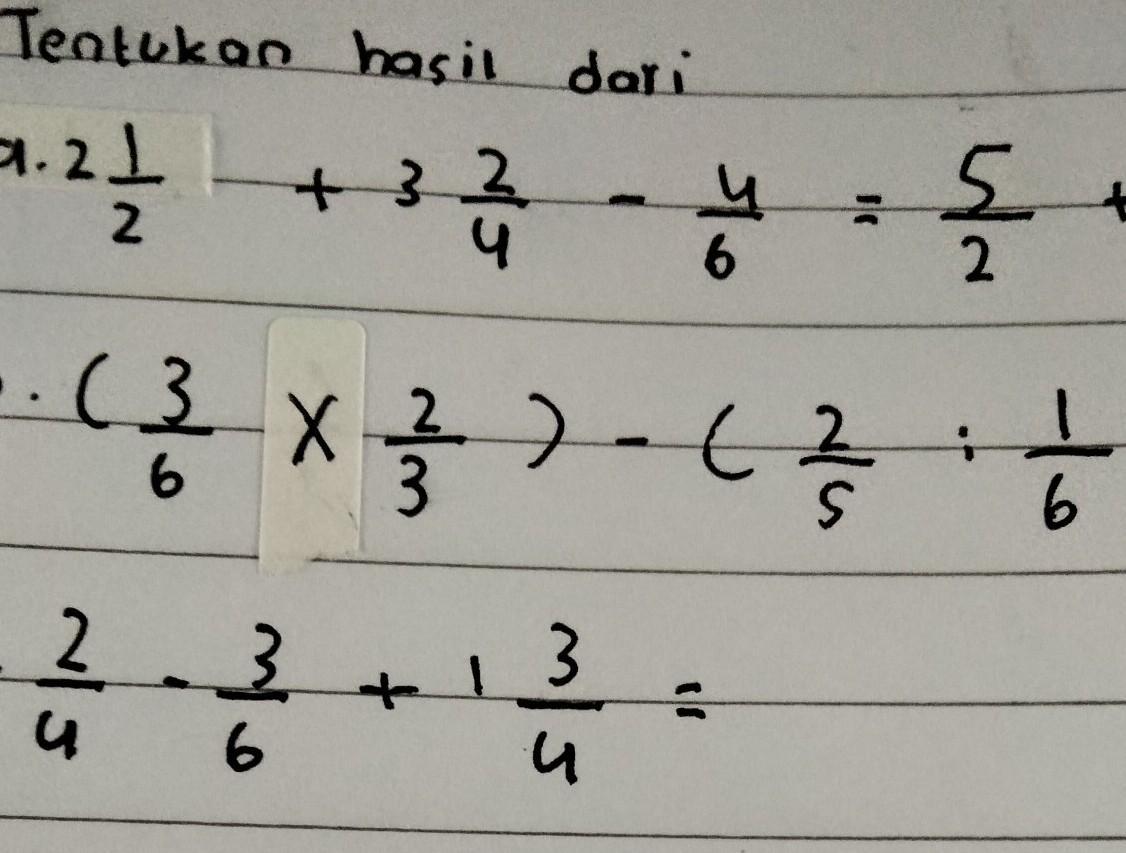 Tentukan hasil dari
a. 2 1/2 + 3 2/4 - 4/6 = 5/2 +
. ( 3/6 X 2/3 ) - ( 2/5 : 1/6
2/4 - 3/6 + 1 3/4 =